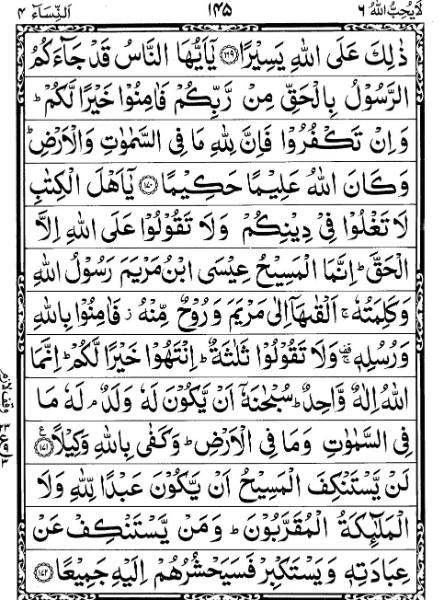 لَا يُحِبُّ اللّٰهُ ٦ ١٤٥ اَلنِّسَآء ٤
ذٰلِكَ عَلَى اللّٰهِ يَسِيْرًا ﴿١٦٩﴾ يٰٓاَيُّهَا النَّاسُ قَدْ جَآءَكُمُ
الرَّسُوْلُ بِالْحَقِّ مِنْ رَّبِّكُمْ فَاٰمِنُوْا خَيْرًا لَّكُمْ ؕ
وَاِنْ تَكْفُرُوْا فَاِنَّ لِلّٰهِ مَا فِى السَّمٰوٰتِ وَالْاَرْضِ ؕ
وَكَانَ اللّٰهُ عَلِيْمًا حَكِيْمًا ﴿١٧٠﴾ يٰٓاَهْلَ الْكِتٰبِ
لَا تَغْلُوْا فِىْ دِيْنِكُمْ وَلَا تَقُوْلُوْا عَلَى اللّٰهِ اِلَّا
الْحَقَّ ؕ اِنَّمَا الْمَسِيْحُ عِيْسَى ابْنُ مَرْيَمَ رَسُوْلُ اللّٰهِ
وَكَلِمَتُهٗ ۚ اَلْقٰىهَاۤ اِلٰى مَرْيَمَ وَرُوْحٌ مِّنْهُ ز فَاٰمِنُوْا بِاللّٰهِ
وَرُسُلِهٖ ۚقف وَلَا تَقُوْلُوْا ثَلٰثَةٌ ؕ اِنْتَهُوْا خَيْرًا لَّكُمْ ؕ اِنَّمَا
اللّٰهُ اِلٰهٌ وَّاحِدٌ ؕ سُبْحٰنَهٗۤ اَنْ يَّكُوْنَ لَهٗ وَلَدٌ ۘ لَهٗ مَا
فِى السَّمٰوٰتِ وَمَا فِى الْاَرْضِ ؕ وَكَفٰى بِاللّٰهِ وَكِيْلًا ﴿١٧١﴾ ع
لَنْ يَّسْتَنْكِفَ الْمَسِيْحُ اَنْ يَّكُوْنَ عَبْدًا لِّلّٰهِ وَلَا
الْمَلٰٓئِكَةُ الْمُقَرَّبُوْنَ ؕ وَمَنْ يَّسْتَنْكِفْ عَنْ
عِبَادَتِهٖ وَيَسْتَكْبِرْ فَسَيَحْشُرُهُمْ اِلَيْهِ جَمِيْعًا ﴿١٧٢﴾
وقف لازم